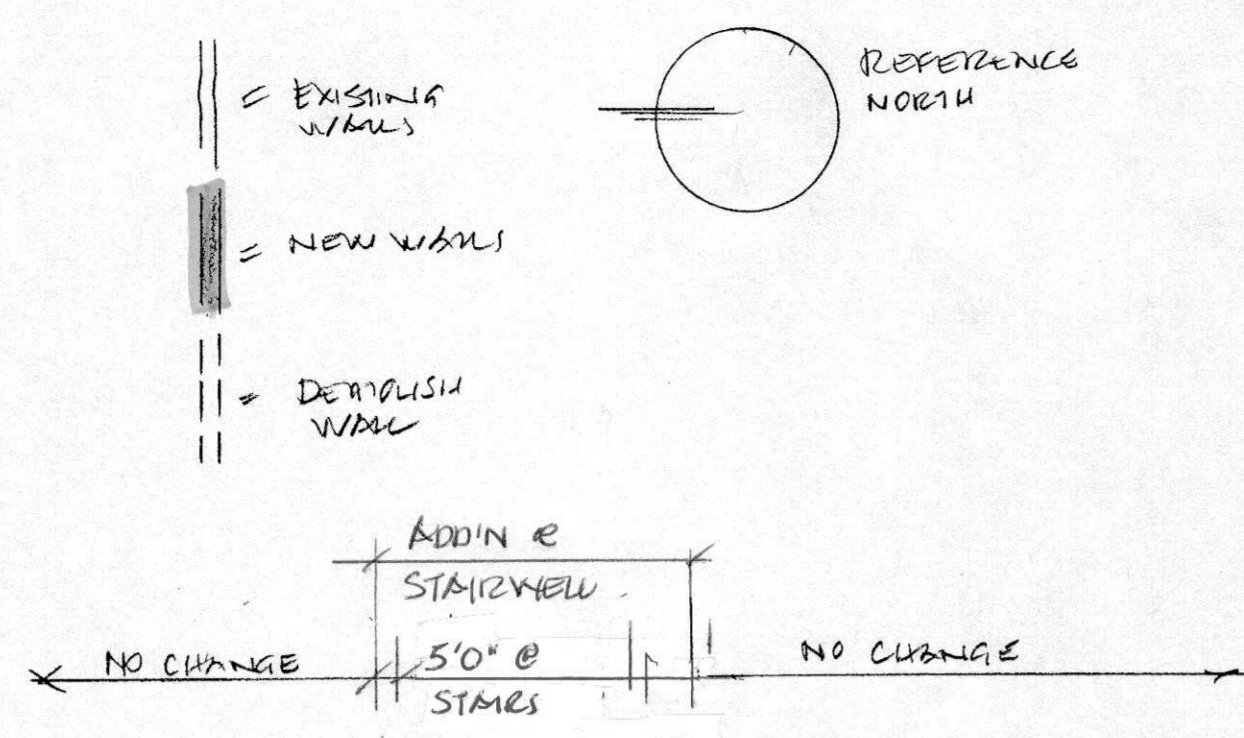 = EXISTING
WALLS
REFERENCE
NORTH
= NEW WALLS
= DEMOLISH
WALL
ADD'N @
STAIRWELL
NO CHANGE
5'0" @
STAIRS
NO CHANGE